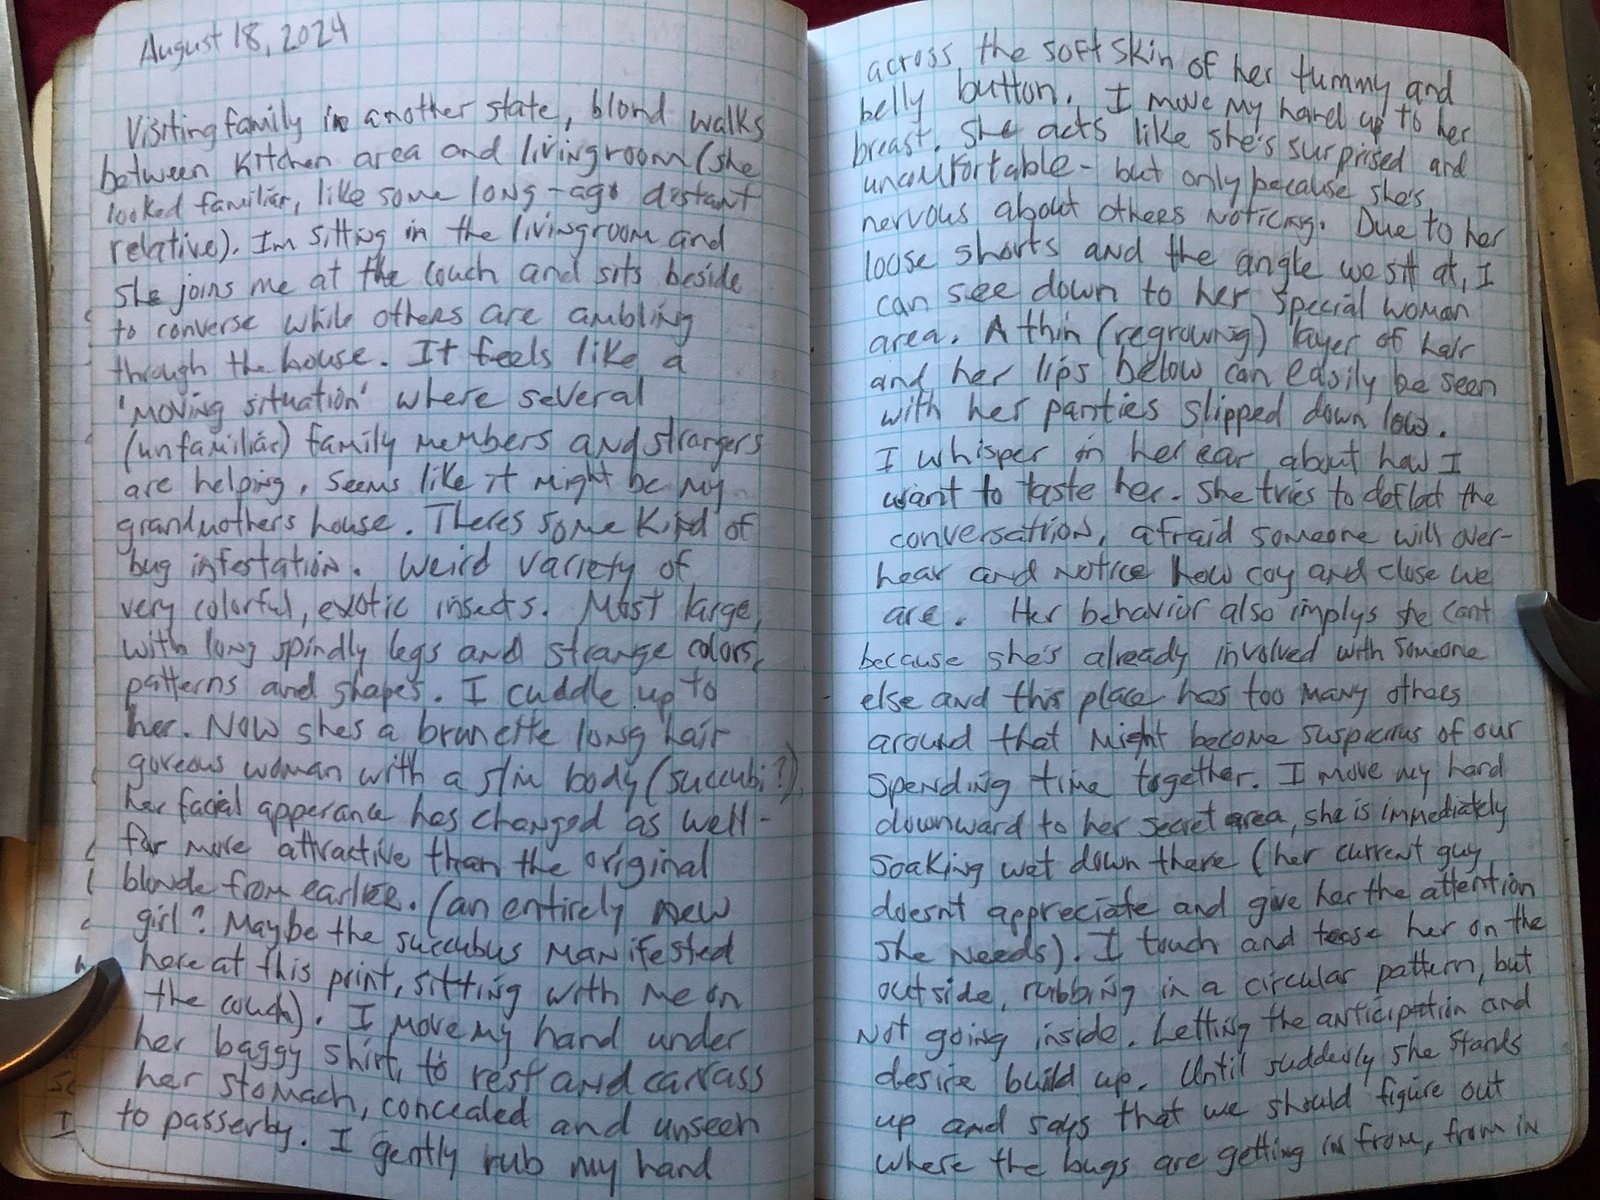 August 18, 2024
Visiting family in another state, blond walks
between kitchen area and livingroom (she
looked familiar, like some long-ago distant
relative). Im sitting in the livingroom and
she joins me at the couch and sits beside
to converse while others are ambling
through the house. It feels like a
'moving situation' where several
(unfamiliar) family members and strangers
are helping, seems like it might be my
grandmothers house. Theres some kind of
bug infestation. Weird variety of
very colorful, exotic insects. Most large,
with long spindly legs and strange colors,
patterns and shapes. I cuddle up to
her. Now she's a brunette long hair
goreous woman with a slim body (succubi?),
her facial apperance has changed as well-
far more attractive than the original
blonde from earlier. (an entirely new
girl? Maybe the succubus manifested
here at this print, sitting with me on
the couch). I move my hand under
her baggy shirt, to rest and carrass
her stomach, concealed and unseen
to passerby. I gently rub my hand
across the soft skin of her tummy and
belly button. I move my hand up to her
breast. She acts like she's surprised and
uncomfortable - but only because she's
nervous about others noticing. Due to her
loose shorts and the angle we sit at, I
can see down to her special woman
area. A thin (regrowing) layer of hair
and her lips below can easily be seen
with her panties slipped down low.
I whisper in her ear about how I
want to taste her. She tries to deflect the
conversation, afraid someone will over-
hear and notice how coy and close we
are. Her behavior also implys she cant
because she's already involved with someone
else and this place has too many others
around that might become suspicious of our
spending time together. I move my hand
downward to her secret area, she is immediately
soaking wet down there (her current guy
doesnt appreciate and give her the attention
she needs). I touch and tease her on the
outside, rubbing in a circular pattern, but
not going inside. Letting the anticipation and
desire build up. Until suddenly she stands
up and says that we should figure out
where the bugs are getting in from, from in